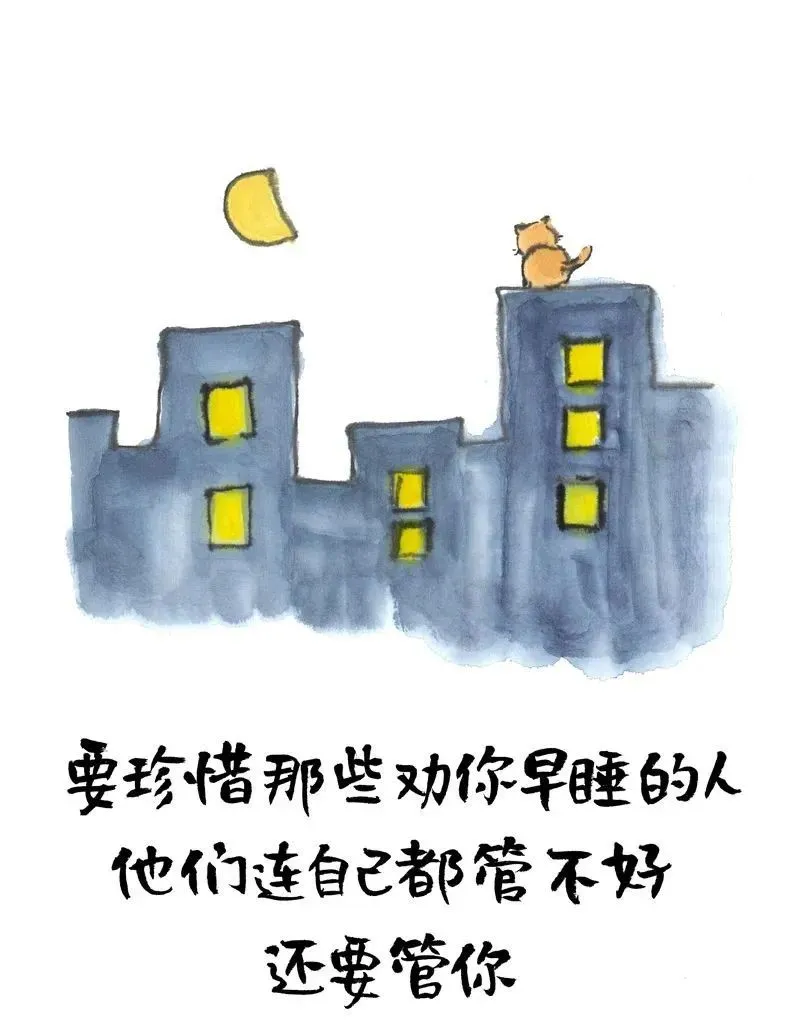 要珍惜那些劝你早睡的人
他们连自己都管不好
还要管你